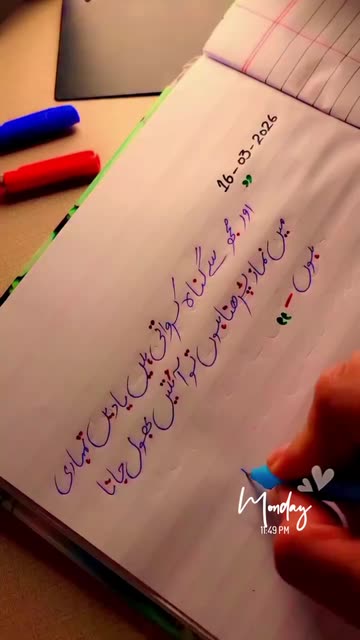 16-03-2026
"
اور مجھ سے گناہ کرواتی ہیں یادیں تمہاری
میں نماز پڑھتا ہوں تو آیتیں بھول جاتا
ہوں -"
Monday
11:49 PM